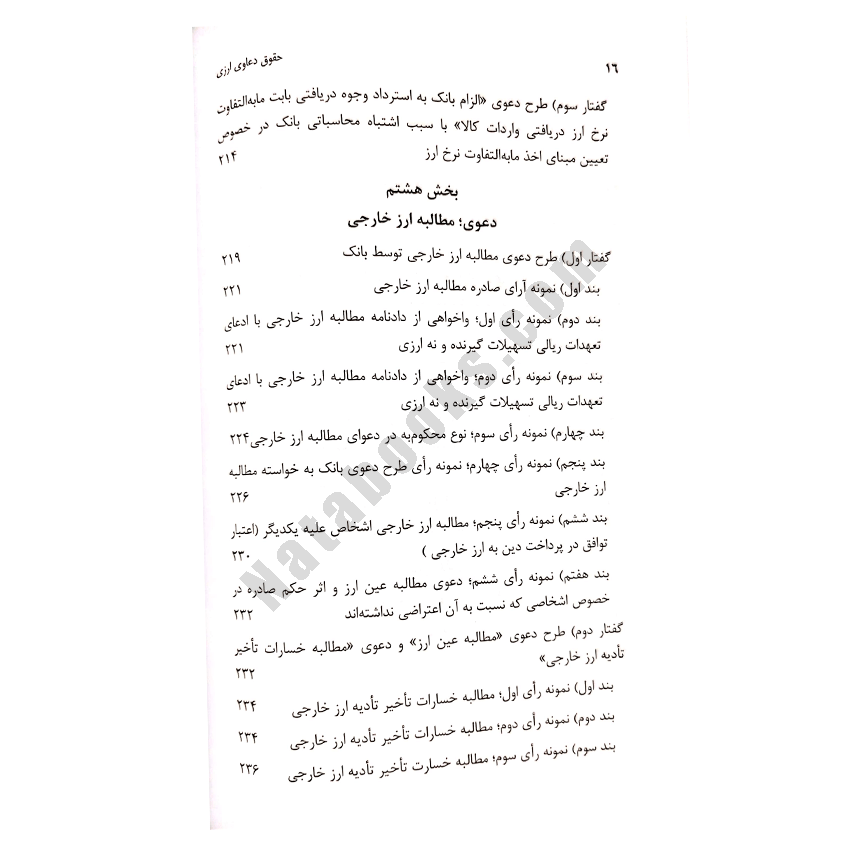 ۱۶ حقوق دعاوی ارزی
گفتار سوم) طرح دعوی «الزام بانک به استرداد وجوه دریافتی بابت مابه‌التفاوت
نرخ ارز دریافتی واردات کالا» با سبب اشتباه محاسباتی بانک در خصوص
تعیین مبنای اخذ مابه‌التفاوت نرخ ارز ۲۱۴
بخش هشتم
دعوی؛ مطالبه ارز خارجی
گفتار اول) طرح دعوی مطالبه ارز خارجی توسط بانک ۲۱۹
بند اول) نمونه آرای صادره مطالبه ارز خارجی ۲۲۱
بند دوم) نمونه رأی اول؛ واخواهی از دادنامه مطالبه ارز خارجی با ادعای
تعهدات ریالی تسهیلات گیرنده و نه ارزی ۲۲۱
بند سوم) نمونه رأی دوم؛ واخواهی از دادنامه مطالبه ارز خارجی با ادعای
تعهدات ریالی تسهیلات گیرنده و نه ارزی ۲۲۳
بند چهارم) نمونه رأی سوم؛ نوع محکوم‌به در دعوای مطالبه ارز خارجی ۲۲۴
بند پنجم) نمونه رأی چهارم؛ نمونه رأی طرح دعوی بانک به خواسته مطالبه
ارز خارجی ۲۲۶
بند ششم) نمونه رأی پنجم؛ مطالبه ارز خارجی اشخاص علیه یکدیگر (اعتبار
توافق در پرداخت دین به ارز خارجی ) ۲۳۰
بند هفتم) نمونه رأی ششم؛ دعوی مطالبه عین ارز و اثر حکم صادره در
خصوص اشخاصی که نسبت به آن اعتراضی نداشته‌اند ۲۳۲
گفتار دوم) طرح دعوی «مطالبه عین ارز» و دعوی «مطالبه خسارات تأخیر
تأدیه ارز خارجی» ۲۳۲
بند اول) نمونه رأی اول؛ مطالبه خسارات تأخیر تأدیه ارز خارجی ۲۳۴
بند دوم) نمونه رأی دوم؛ مطالبه خسارات تأخیر تأدیه ارز خارجی ۲۳۴
بند سوم) نمونه رأی سوم؛ مطالبه خسارت تأخیر تأدیه ارز خارجی ۲۳۶
Natabooks.com